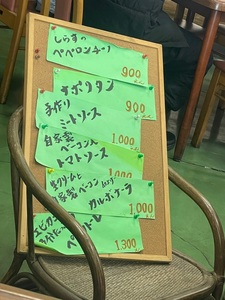 しらすの
ペペロンチーノ
900
ナポリタン
900
手作り
ミートソース
1,000
自家製
ベーコン入
トマトソース
1,000
生クリームと
自家製ベーコン
カルボナーラ
1,000
1,300